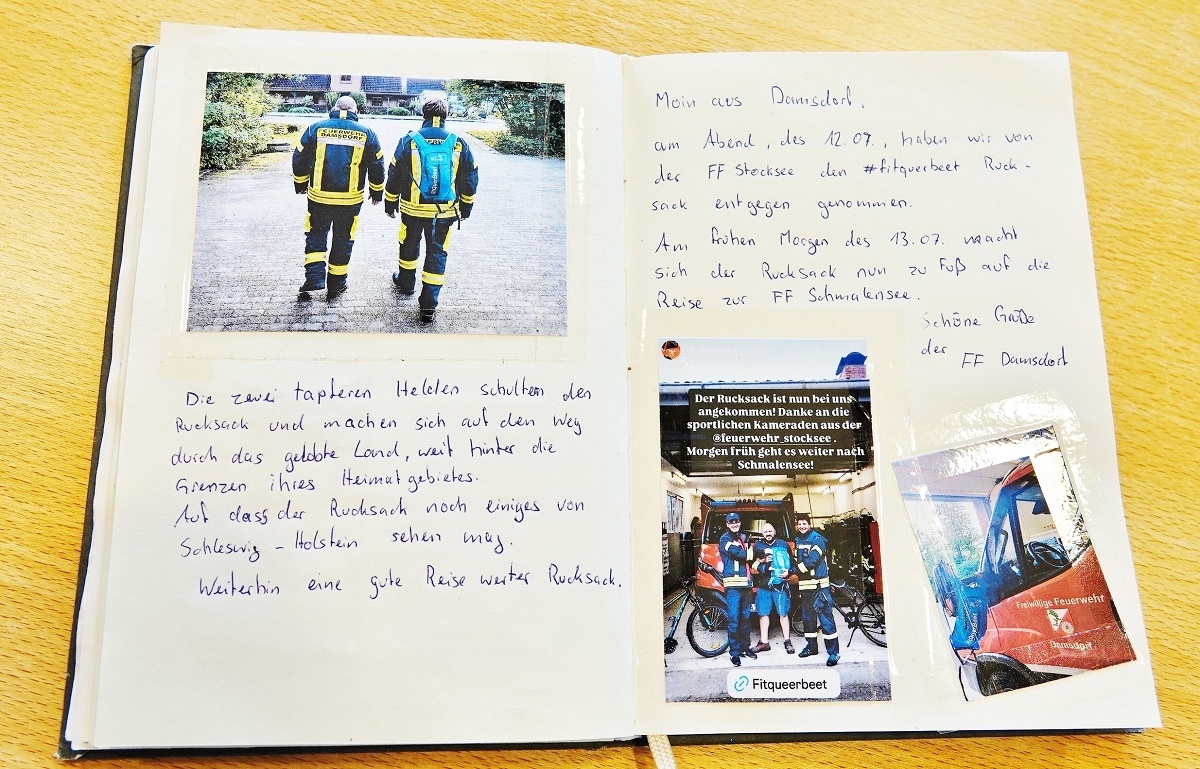 FEUERWEHR
DAMSDORF
Die zwei tapferen Helden schultern den
Rucksack und machen sich auf den Weg
durch das gelobte Land, weit hinter die
Grenzen ihres Heimatgebietes.
Auf dass der Rucksack noch einiges von
Schleswig - Holstein sehen mag.
Weiterhin eine gute Reise werter Rucksack.
Moin aus Damsdorf,
am Abend, des 12.07., haben wir von
der FF Stocksee den #fitquerbeet Ruck-
sack entgegen genommen.
Am frühen Morgen des 13.07. macht
sich der Rucksack nun zu Fuß auf die
Reise zur FF Schmalensee.
Schöne Grüße
der FF Damsdorf
Der Rucksack ist nun bei uns
angekommen! Danke an die
sportlichen Kameraden aus der
@feuerwehr_stocksee .
Morgen früh geht es weiter nach
Schmalensee!
Fitqueerbeet
Freiwillige Feuerwehr
Damsdorf